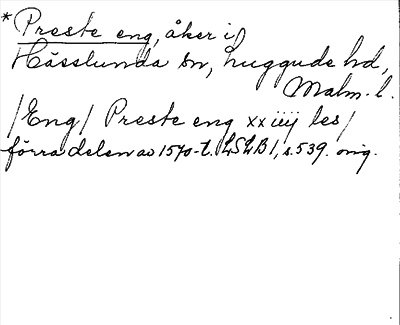 * Preste eng, åker i
Hässlunda sn, Luggude hd,
Malm. l.
/Eng/ Preste eng xx iiij les/
förra delen av 1570-t. LSLB 1, s. 539. orig.